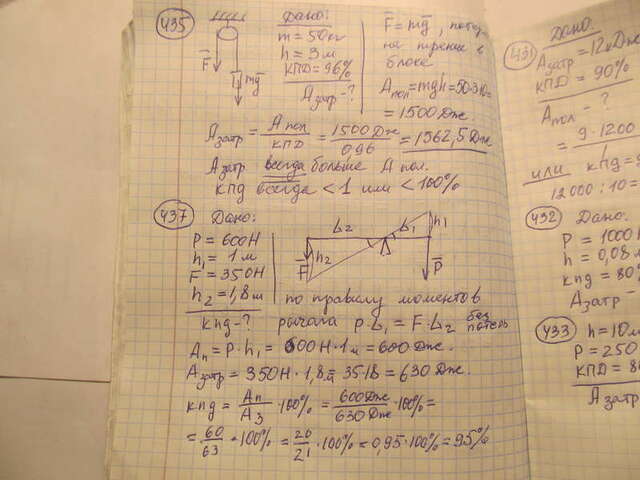 435
Дано:
m = 50 кг
h = 3 м
КПД = 96%
Aзатр - ?
F = mg, потер
на трение в
блоке
Aпол = mgh = 50·3·10 =
= 1500 Дж
F
mg
Aзатр = Aпол/КПД = 1500 Дж/0,96 = 1562,5 Дж
Aзатр всегда больше A пол.
КПД всегда < 1 или < 100%
437
Дано:
P = 600 Н
h₁ = 1 м
F = 350 Н
h₂ = 1,8 м
КПД - ?
L₂
L₁
h₁
F
h₂
P
по правилу моментов
рычага P·L₁ = F·L₂ без потерь
Aп = P·h₁ = 600 Н · 1 м = 600 Дж.
Aзатр = 350 Н · 1,8 м = 35·18 = 630 Дж.
КПД = Aп/Aз · 100% = 600 Дж/630 Дж · 100% =
= 60/63 · 100% = 20/21 · 100% = 0,95·100% = 95%
431
Дано:
Aзатр = 12 кДж
КПД = 90%
Aпол - ?
= 9·1200
или КПД = 9
12000 : 10 =
432
Дано.
P = 1000
h = 0,08
КПД = 80
Aзатр -
433
h = 10 м
P = 250
КПД = 80
Aзатр